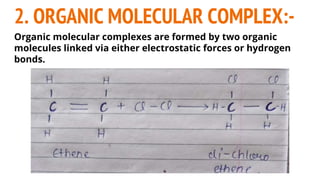 2. ORGANIC MOLECULAR COMPLEX:-
Organic molecular complexes are formed by two organic
molecules linked via either electrostatic forces or hydrogen
bonds.
H H Cl Cl
C = C + Cl-Cl → H-C - C-H
H H H H
Ethene di-chloro
ethene